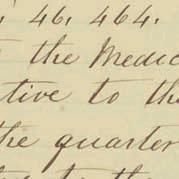 , 46, 464.
the Medic
tive to the
the quarter